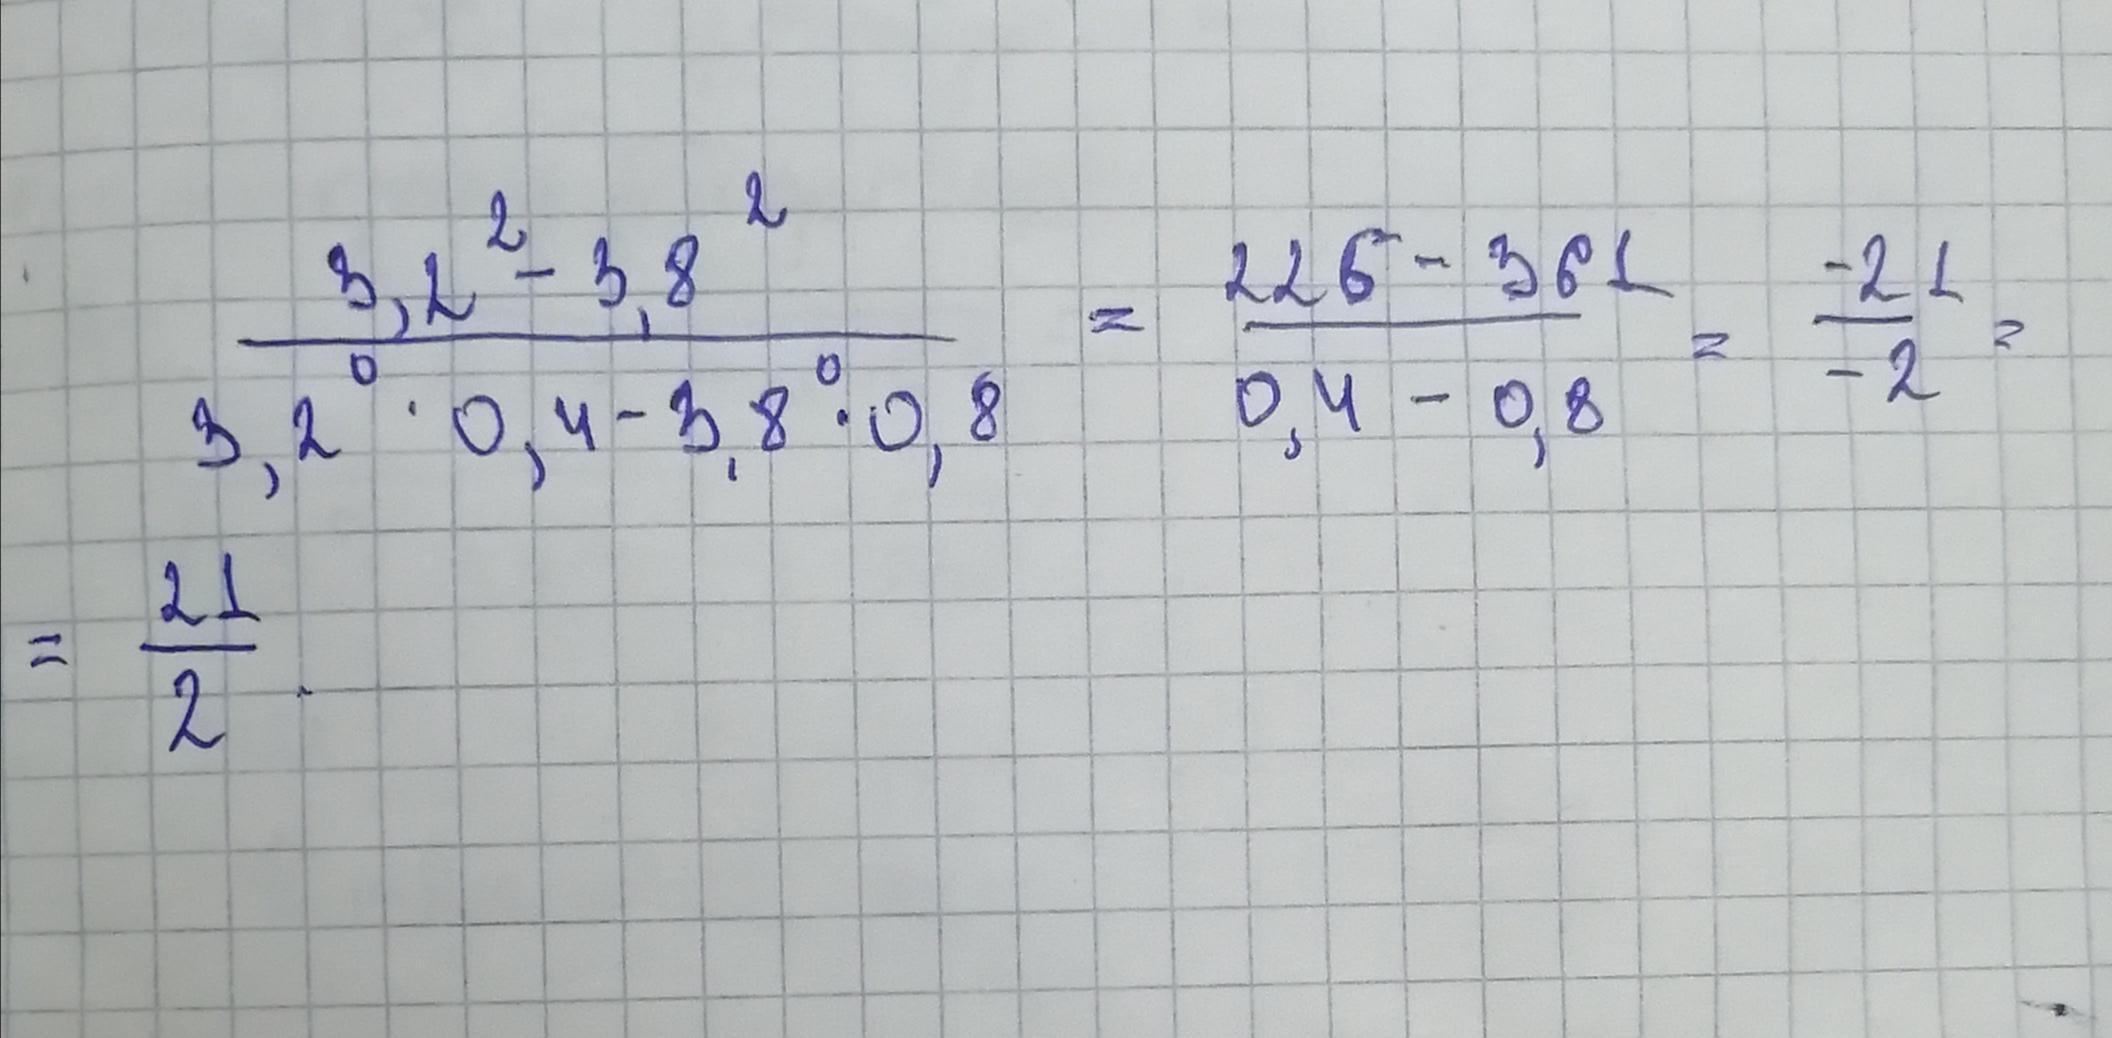 (3,2² - 3,8²)/(3,2⁰ · 0,4 - 3,8⁰ · 0,8) = (226 - 361)/(0,4 - 0,8) = (-21)/(-2) =
= 21/2 .